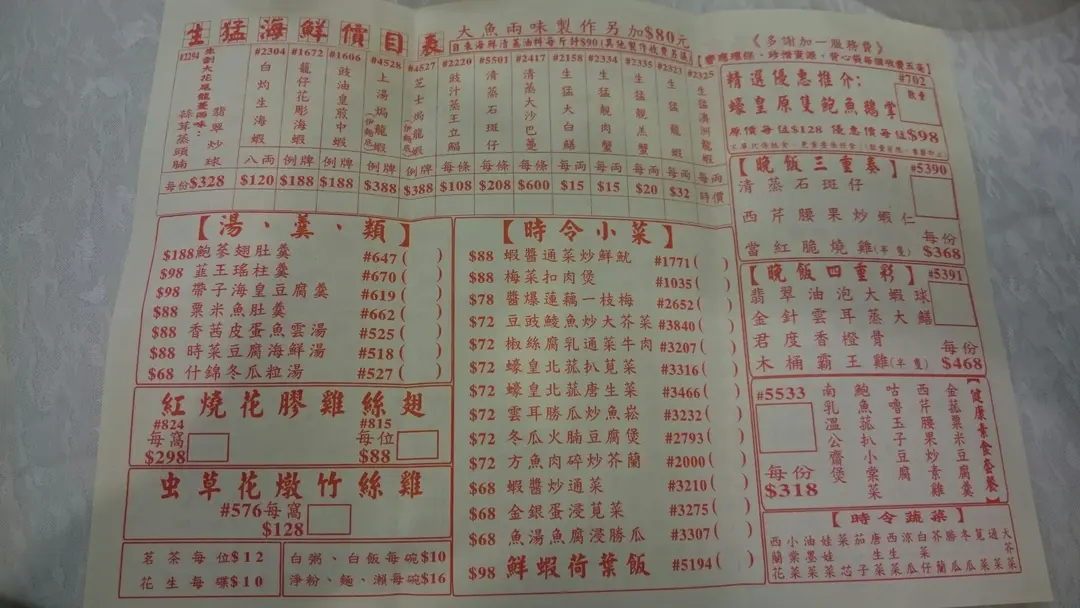 生猛海鮮價目表
大魚兩味製作另加$80元
#2304 白灼生海蝦 八両 $120
#1672 籠仔花彫海蝦 例牌 $188
#1606 豉油皇煎中蝦 例牌 $188
#4528 上湯焗龍蝦(伊麵底) 例牌 $388
#4527 芝士焗龍蝦(伊麵底) 例牌 $388
#2220 豉汁蒸王立鱲 每條 $108
#5501 清蒸石斑仔 每條 $208
#2417 清蒸大沙巴躉 每條 $600
#2158 生猛大白鱔 每両 $15
#2334 生猛靚肉蟹 每両 $15
#2335 生猛靚羔蟹 每両 $20
#2323 生猛龍蝦 每両 $32
#2325 生猛澳洲龍蝦 每両 時價
翡翠炒球
蒜茸蒸頭腩
每份$328
《多謝加一服務費》
精選優惠推介: #702
蠔皇原隻鮑魚鵝掌 數量
原價每位$128 優惠價每位$98
【晚飯三重奏】 #5390
清蒸石斑仔
西芹腰果炒蝦仁
當紅脆燒雞(半隻)
每份
$368
【晚飯四重彩】 #5391
翡翠油泡大蝦球
金針雲耳蒸大鱔
君度香橙骨
木桶霸王雞(半隻)
每份
$468
【湯、羹、類】
$188 鮑蔘翅肚羹 #647( )
$98 韮王瑤柱羹 #670( )
$98 帶子海皇豆腐羹 #619( )
$88 粟米魚肚羹 #662( )
$88 香茜皮蛋魚雲湯 #525( )
$88 時菜豆腐海鮮湯 #518( )
$68 什錦冬瓜粒湯 #527( )
紅燒花膠雞絲翅
#824 每窩 $298
#815 每位 $88
虫草花燉竹絲雞
#576每窩
$128
茗茶每位$12
花生每碟$10
白粥、白飯每碗$10
淨粉、麵、瀨每碗$16
【時令小菜】
$88 蝦醬通菜炒鮮魷 #1771( )
$88 梅菜扣肉煲 #1035( )
$78 醬爆蓮藕一枝梅 #2652( )
$72 豆豉鯪魚炒大芥菜 #3840( )
$72 椒絲腐乳通菜牛肉 #3207( )
$72 蠔皇北菰扒莧菜 #3316( )
$72 蠔皇北菰唐生菜 #3466( )
$72 雲耳勝瓜炒魚崧 #3232( )
$72 冬瓜火腩豆腐煲 #2793( )
$72 方魚肉碎炒芥蘭 #2000( )
$68 蝦醬炒通菜 #3210( )
$68 金銀蛋浸莧菜 #3275( )
$68 魚湯魚腐浸勝瓜 #3307( )
$98 鮮蝦荷葉飯 #5194( )
【健康素食套餐】
金菰粟米豆腐羹
西芹腰果炒素雞
咕嚕玉子豆腐
鮑魚菰扒小棠菜
南乳溫公齋煲
#5533
每份
$318
【時令蔬菜】
大芥菜
通菜
莧菜
冬瓜
勝瓜
芥蘭
白菜仔
涼瓜
西生菜
唐生菜
茄子
菜芯
娃娃菜
油墨菜
小棠菜
西蘭花